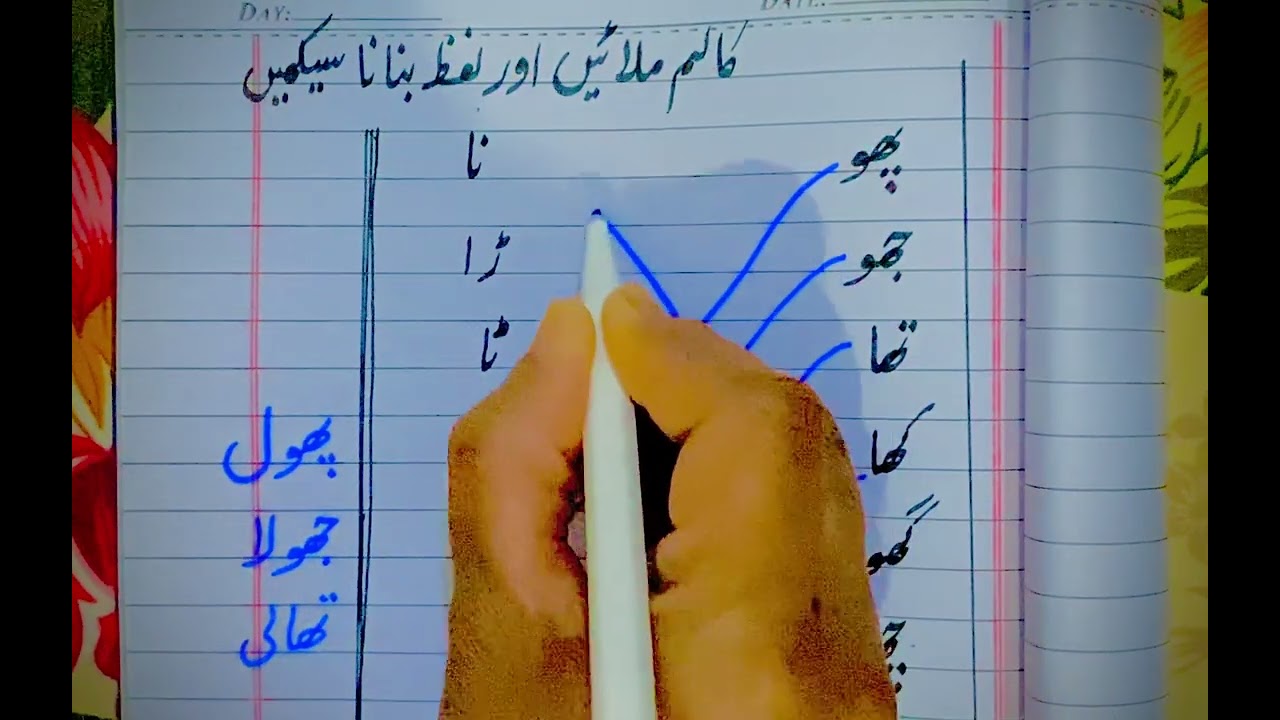 DAY:
DATE:
کالم ملائیں اور لفظ بنانا سیکھیں
پھو نا
جھو ڑا
تھا ٹا
کھا پھول
گھو جھولا
تھالی